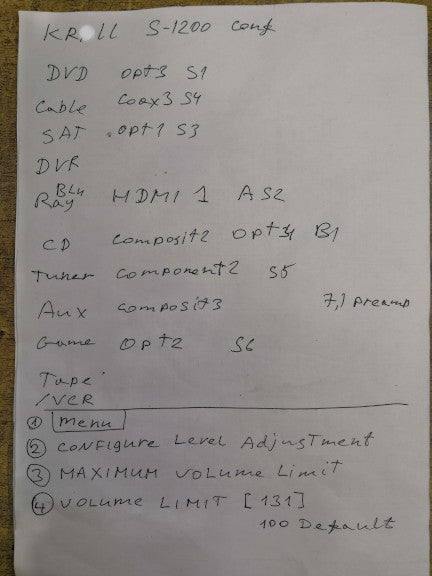 KR.ll S-1200 Conf
DVD Opt3 S1
Cable Coax3 S4
SAT .Opt1 S3
DVR
Blu
Ray HDMI 1 A S2
CD Composit2 Opt4 B1
Tuner Component2 S5
Aux Composit3 7,1 preamp
Game Opt2 S6
Tape
/VCR
① Menu
② Configure Level Adjustment
③ MAXIMUM VOLUME Limit
④ VOLUME LIMIT [131]
100 Default